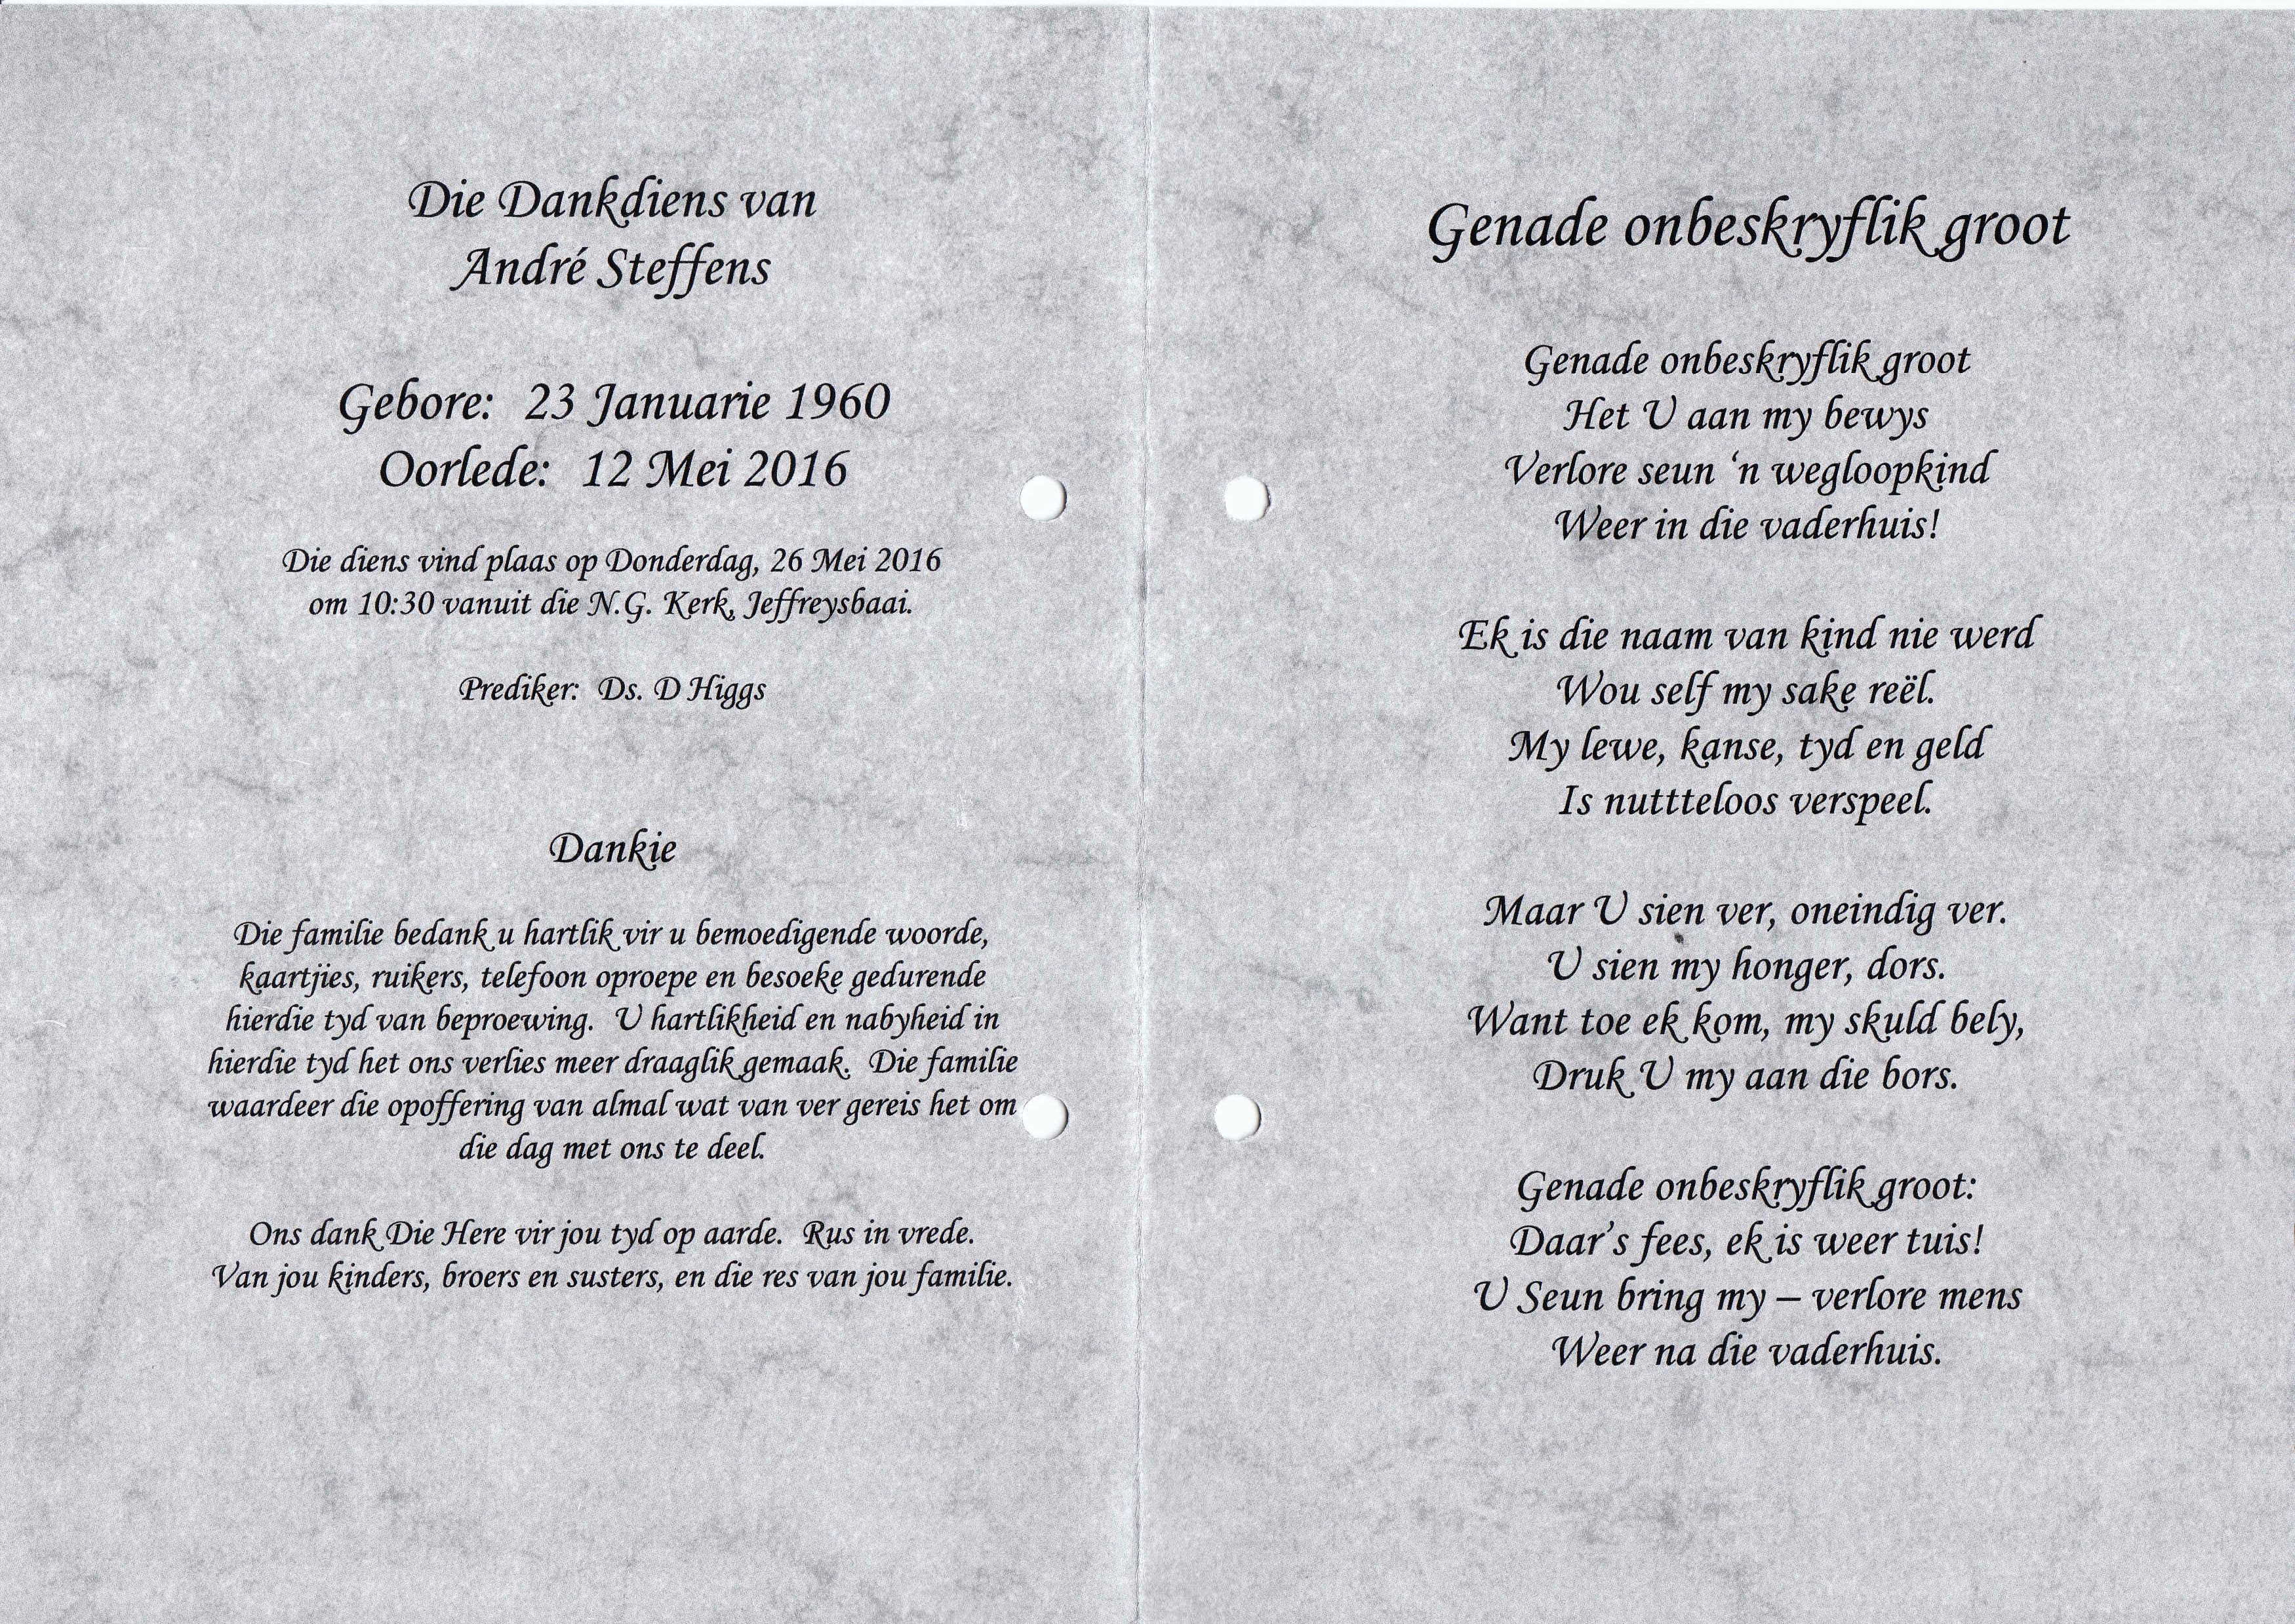 Die Dankdiens van
André Steffens
Gebore:  23 Januarie 1960
Oorlede:  12 Mei 2016
Die diens vind plaas op Donderdag, 26 Mei 2016
om 10:30 vanuit die N.G. Kerk, Jeffreysbaai.
Prediker:  Ds. D Higgs
Dankie
Die familie bedank u hartlik vir u bemoedigende woorde,
kaartjies, ruikers, telefoon oproepe en besoeke gedurende
hierdie tyd van beproewing.  U hartlikheid en nabyheid in
hierdie tyd het ons verlies meer draaglik gemaak.  Die familie
waardeer die opoffering van almal wat van ver gereis het om
die dag met ons te deel.
Ons dank Die Here vir jou tyd op aarde.  Rus in vrede.
Van jou kinders, broers en susters, en die res van jou familie.
Genade onbeskryflik groot
Genade onbeskryflik groot
Het U aan my bewys
Verlore seun ‘n wegloopkind
Weer in die vaderhuis!
Ek is die naam van kind nie werd
Wou self my sake reël.
My lewe, kanse, tyd en geld
Is nuttteloos verspeel.
Maar U sien ver, oneindig ver.
U sien my honger, dors.
Want toe ek kom, my skuld bely,
Druk U my aan die bors.
Genade onbeskryflik groot:
Daar’s fees, ek is weer tuis!
U Seun bring my – verlore mens
Weer na die vaderhuis.